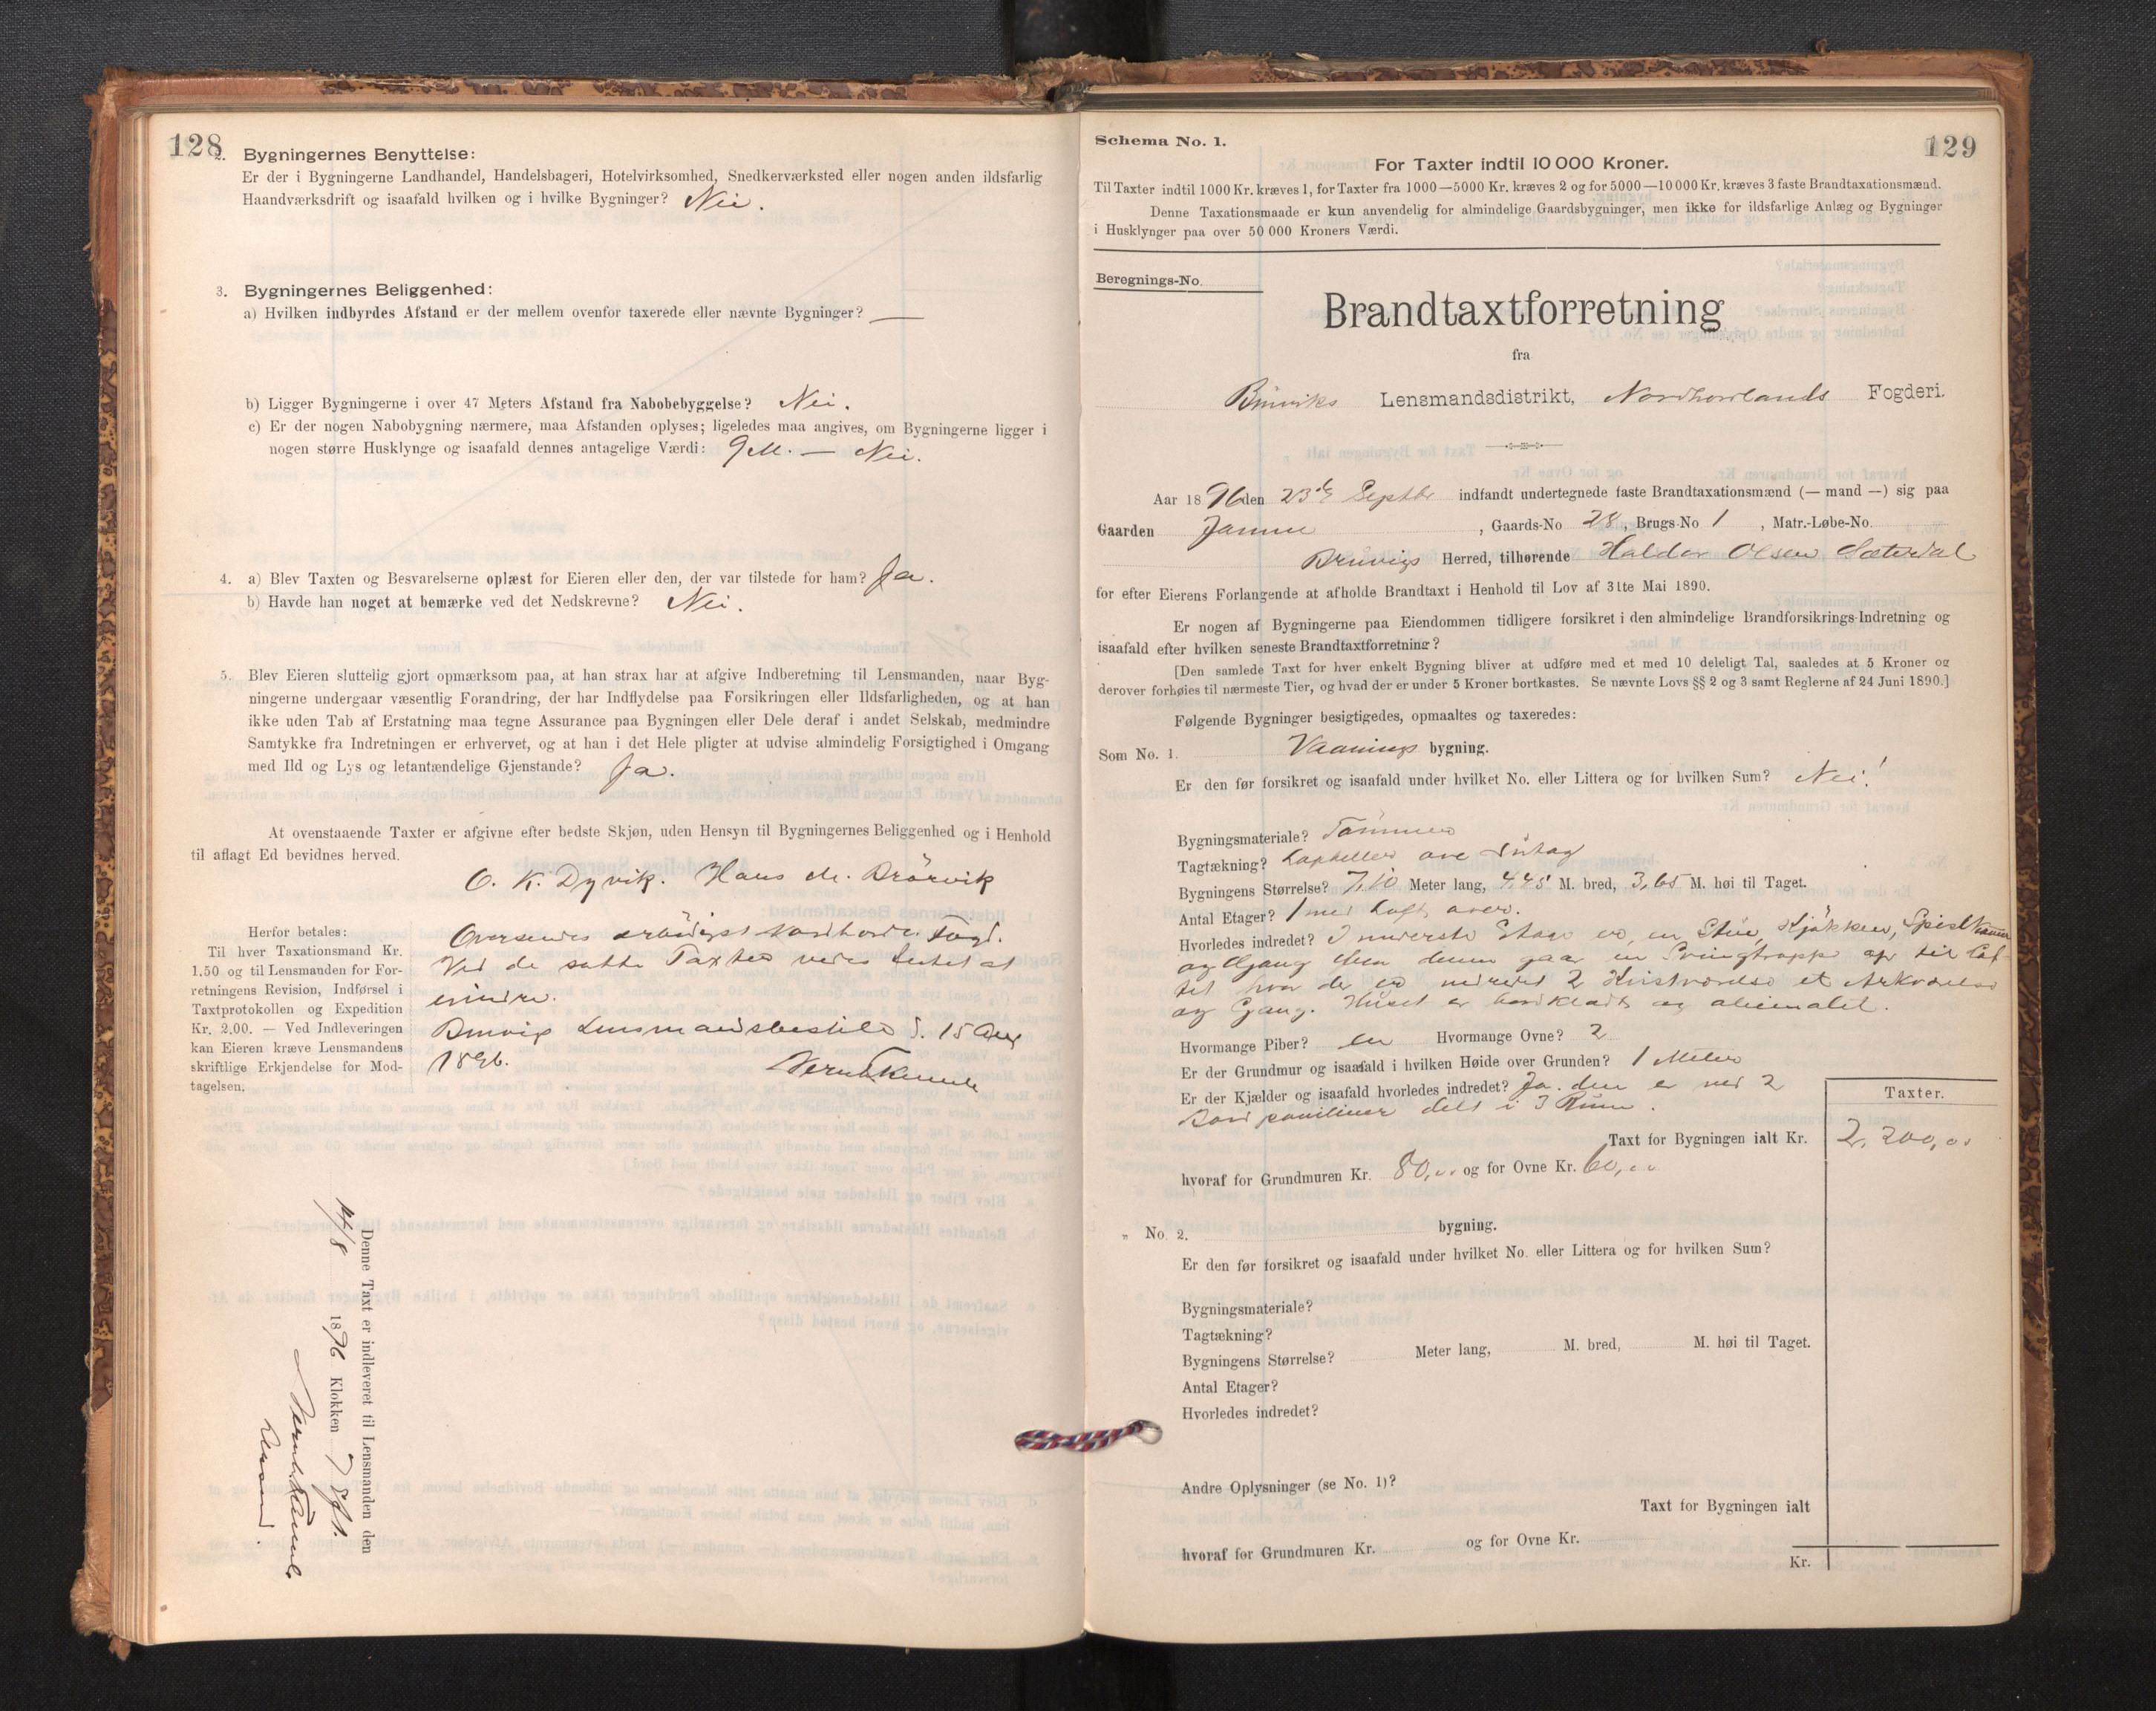 128
2. Bygningernes Benyttelse:
Er der i Bygningerne Landhandel, Handelsbageri, Hotelvirksomhed, Snedkerværksted eller nogen anden ildsfarlig
Haandværksdrift og isaafald hvilken og i hvilke Bygninger? Nei.
3. Bygningernes Beliggenhed:
a) Hvilken indbyrdes Afstand er der mellem ovenfor taxerede eller nævnte Bygninger? —
b) Ligger Bygningerne i over 47 Meters Afstand fra Nabobebyggelse? Nei.
c) Er der nogen Nabobygning nærmere, maa Afstanden oplyses; ligeledes maa angives, om Bygningerne ligger i
nogen større Husklynge og isaafald dennes antagelige Værdi: 9 M. — Nei.
4. a) Blev Taxten og Besvarelserne oplæst for Eieren eller den, der var tilstede for ham? Ja.
b) Havde han noget at bemærke ved det Nedskrevne? Nei.
5. Blev Eieren sluttelig gjort opmærksom paa, at han strax har at afgive Indberetning til Lensmanden, naar Byg-
ningerne undergaar væsentlig Forandring, der har Indflydelse paa Forsikringen eller Ildsfarligheden, og at han
ikke uden Tab af Erstatning maa tegne Assurance paa Bygningen eller Dele deraf i andet Selskab, medmindre
Samtykke fra Indretningen er erhvervet, og at han i det Hele pligter at udvise almindelig Forsigtighed i Omgang
med Ild og Lys og letantændelige Gjenstande? Ja.
At ovenstaaende Taxter er afgivne efter bedste Skjøn, uden Hensyn til Bygningernes Beliggenhed og i Henhold
til aflagt Ed bevidnes herved.
O. K. Dyvik. Hans M.
Herfor betales:
Til hver Taxationsmand Kr.
1,50 og til Lensmanden for For-
retningens Revision, Indførsel i
Taxtprotokollen og Expedition
Kr. 2,00. — Ved Indleveringen
kan Eieren kræve Lensmandens
skriftlige Erkjendelse for Mod-
tagelsen.
Oversendes ærbödigst Fogd.
Ved de satte Taxter vides Intet at
erindre.
Bruvig Lensmandsbestild. d. 15 Aug
1896.
Denne Taxt er indleveret til Lensmanden den
14/8 1896 Klokken 7 Eft.
Lensmand.
Schema No. 1.
129
For Taxter indtil 10 000 Kroner.
Til Taxter indtil 1000 Kr. kræves 1, for Taxter fra 1000—5000 Kr. kræves 2 og for 5000—10 000 Kr. kræves 3 faste Brandtaxationsmænd.
Denne Taxationsmaade er kun anvendelig for almindelige Gaardsbygninger, men ikke for ildsfarlige Anlæg og Bygninger
i Husklynger paa over 50 000 Kroners Værdi.
Beregnings-No.
Brandtaxtforretning
fra
Bruviks Lensmandsdistrikt, Nordhordlands Fogderi.
Aar 1896 den 23de Septbr indfandt undertegnede faste Brandtaxationsmænd (— mand —) sig paa
Gaarden Jamne, Gaards-No 28, Brugs-No 1, Matr.-Løbe-No.
Bruvigs Herred, tilhørende Haldor Olsen Sæterdal
for efter Eierens Forlangende at afholde Brandtaxt i Henhold til Lov af 31te Mai 1890.
Er nogen af Bygningerne paa Eiendommen tidligere forsikret i den almindelige Brandforsikrings-Indretning og
isaafald efter hvilken seneste Brandtaxtforretning?
[Den samlede Taxt for hver enkelt Bygning bliver at udføre med et med 10 deleligt Tal, saaledes at 5 Kroner og
derover forhøies til nærmeste Tier, og hvad der er under 5 Kroner bortkastes. Se nævnte Lovs §§ 2 og 3 samt Reglerne af 24 Juni 1890.]
Følgende Bygninger besigtigedes, opmaaltes og taxeredes:
Som No. 1. Vaanings bygning.
Er den før forsikret og isaafald under hvilket No. eller Littera og for hvilken Sum? Nei!
Bygningsmateriale? Tömmer
Tagtækning?
Bygningens Størrelse? 7,10 Meter lang, 4,45 M. bred, 3,65 M. høi til Taget.
Antal Etager? 1 med Loft over.
Hvorledes indredet? I nederste Etage er, en Stue, Kjökken, Spiskammer
og Gang fra denne gaar en Svingtrappe op til Lof-
tet hvor der er indredet 2 Kvistværelse et Arkværelse
og Gang. Huset er bordklædt og oliemalet.
Hvormange Piber? en Hvormange Ovne? 2
Er der Grundmur og isaafald i hvilken Høide over Grunden? 1 Meter
Er der Kjælder og isaafald hvorledes indredet? Ja. den er ved 2
Bord delt i 3 Rum.
Taxter.
Taxt for Bygningen ialt Kr. 2,200,00
hvoraf for Grundmuren Kr. 80,00 og for Ovne Kr. 60,00
„ No. 2. bygning.
Er den før forsikret og isaafald under hvilket No. eller Littera og for hvilken Sum?
Bygningsmateriale?
Tagtækning?
Bygningens Størrelse? Meter lang, M. bred, M. høi til Taget.
Antal Etager?
Hvorledes indredet?
Andre Oplysninger (se No. 1)?
Taxt for Bygningen ialt
hvoraf for Grundmuren Kr. og for Ovne Kr.
Kr.